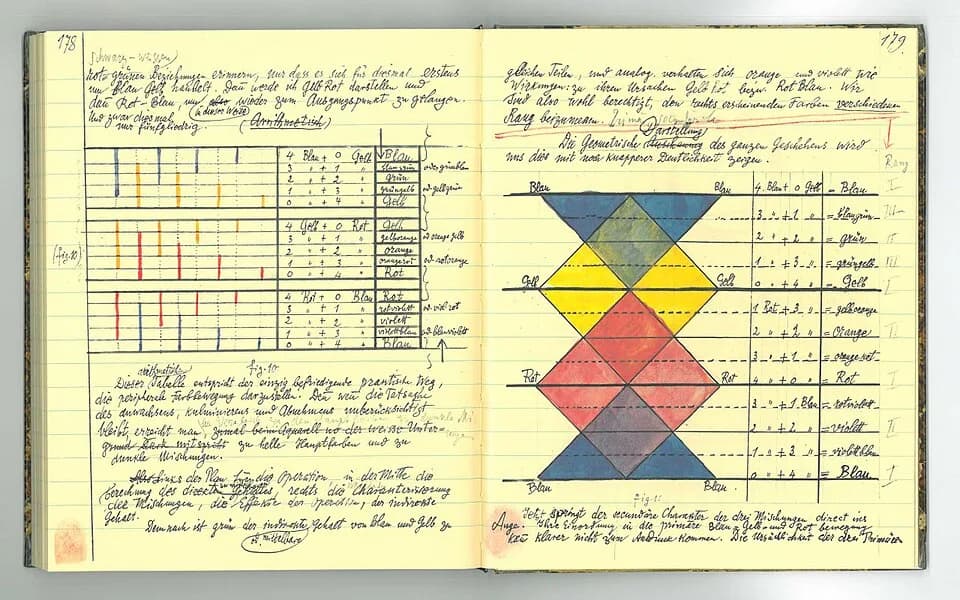 178
schwarz-weissen
rot grünen Beziehungen erinnern, nur dass es sich für diesmal erstens
um Blau Gelb handelt. Dann werde ich Gelb Rot darstellen und
dann Rot-Blau, um also wieder zum Ausgangspunkt zu gelangen.
Und zwar diesmal in dieser Weise (Arithmetisch)
nur fünfgliedrig.
4 Blau + 0 Gelb Blau
3 " + 1 " blaugrün od grünblau
2 " + 2 " grün
1 " + 3 " grüngelb od gelbgrün
0 " + 4 " Gelb
4 Gelb + 0 Rot Gelb
3 " + 1 " gelborange od orangegelb
(fig. 10) 2 " + 2 " orange
1 " + 3 " orangerot od rotorange
0 " + 4 " Rot
4 Rot + 0 Blau Rot
3 " + 1 " rotviolett od viol rot
2 " + 2 " violett
1 " + 3 " violettblau od blauviolett
0 " + 4 " Blau
fig. 10
arithmetische
Diese Tabelle entspricht der einzig befriedigende praktische Weg,
die peripherale Farbbewegung darzustellen. Denn wenn die Tatsache
des Anwachsens, kulminierens und Abnehmens unberücksichtigt
bleibt, erreicht man zumal beim Aquarell wo der weisse Unter-
grund stark mitspricht zu helle Hauptfarben und zu
dunkle Mischungen.
Links der Plan für die Operation, in der Mitte die
Berechnung des Gehaltes, rechts die Charakterisierung
der Mischungen, die Effekte der Operation, der indirekte
Gehalt.
Demnach ist grün der indirekte Gehalt von Blau und Gelb zu
od. mittelbare
179
gleichen Teilen, und analog verhalten sich orange und violett wie
Wirkungen zu ihren Ursachen Gelb Rot bezw. Rot Blau. Wir
sind also wohl berechtigt, den rechts erscheinenden Farben verschiedenen
Rang beizumessen.
Darstellung
Die Geometrische des ganzen Geschehens wird
uns dies mit noch knapperer Deutlichkeit zeigen.
Rang
Blau Blau 4 Blau + 0 Gelb = Blau I
3 " + 1 " = blaugrün III
2 " + 2 " = grün II
1 " + 3 " = grüngelb III
Gelb Gelb 0 " + 4 " = Gelb I
1 Rot + 3 " = gelborange
2 " + 2 " = Orange II
3 " + 1 " = orangerot
Rot Rot 4 " + 0 " = Rot I
3 " + 1 Blau = rotviolett
2 " + 2 " = violett II
1 " + 3 " = violettblau
Blau Blau 0 " + 4 " = Blau I
fig. 11
Jetzt springt der secundäre Charakter der drei Mischungen direct ins
Auge. Ihre Einordnung in die primäre Blau-Gelb- und Rot bewegung
kann klarer nicht zum Ausdruck kommen. Die Ursächlichkeit der drei Primären